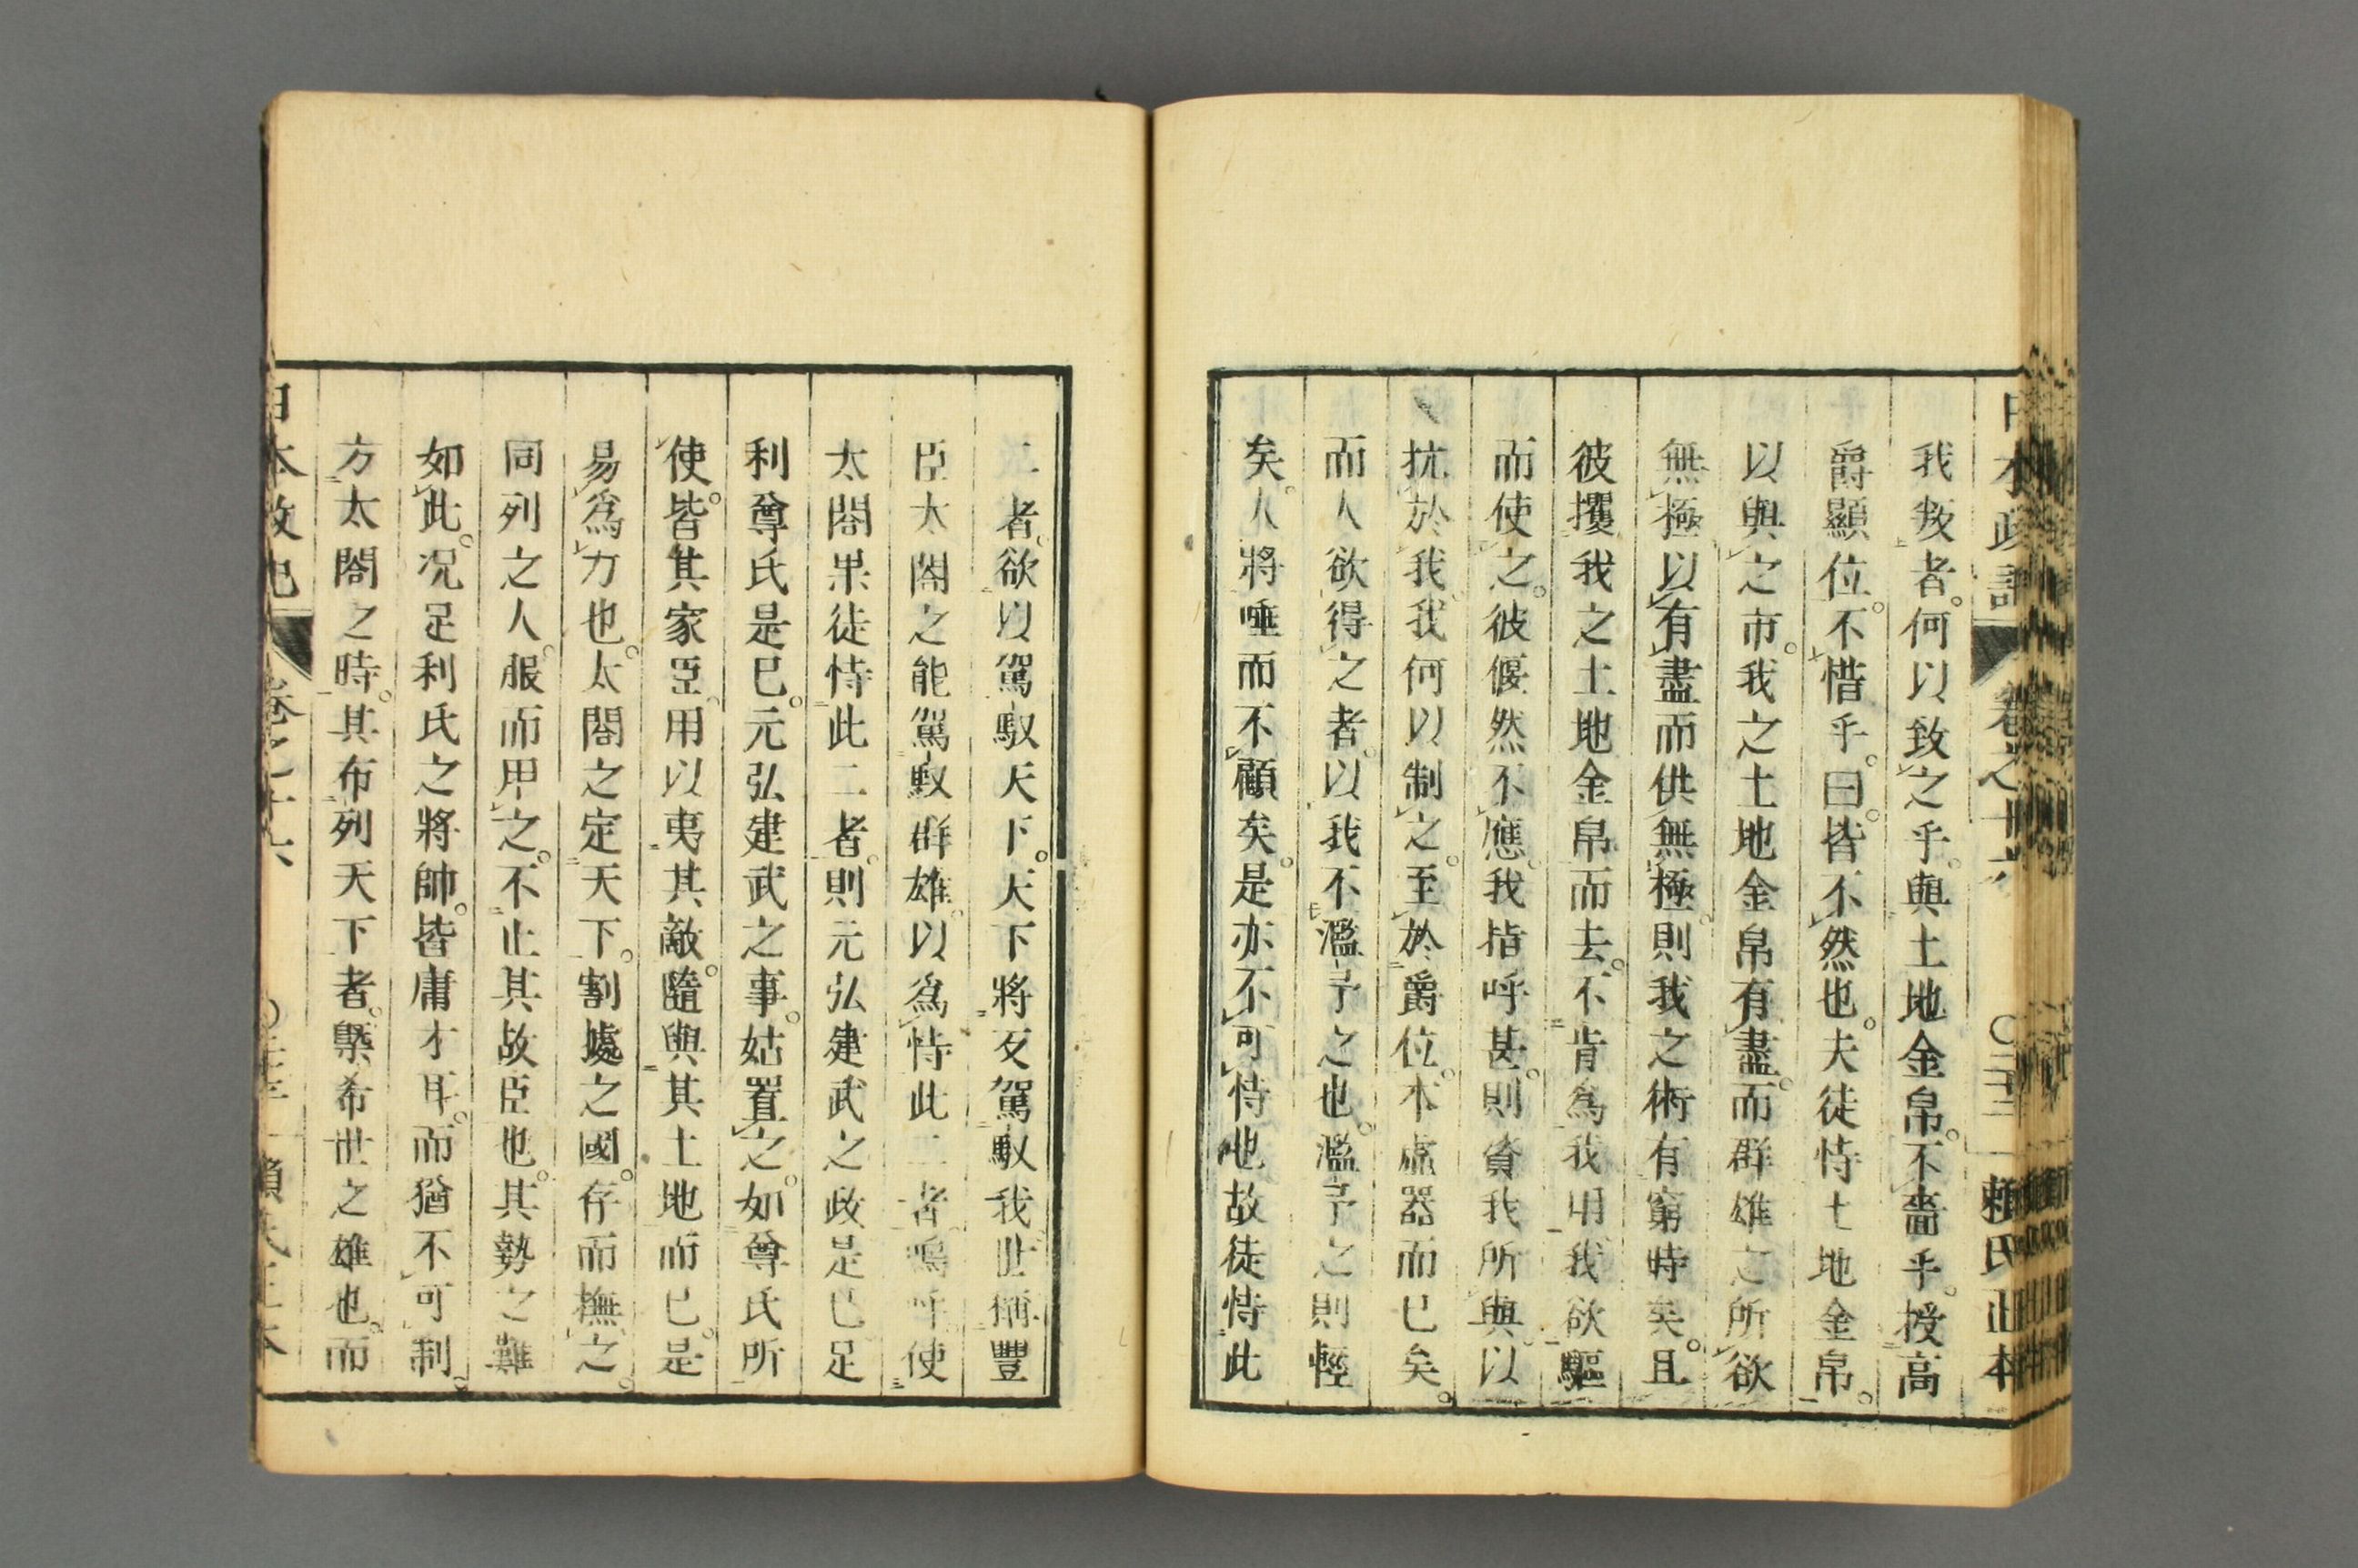 日本政記
卷之十六
賴氏正本
我叛者。何以致之乎。與土地金帛。不嗇乎。授高
爵顯位。不惜乎。曰。皆不然也。夫徒恃土地金帛。
以與之市。我之土地金帛有盡。而群雄之所欲
無極。以有盡而供無極。則我之術有窮時矣。且
彼攫我之土地金帛而去。不肯爲我用。我欲驅
而使之。彼偃然不應。我指呼甚。則資我所與。以
抗於我。我何以制之。至於爵位。本虛器而已矣。
而人欲得之者。以我不濫予之也。濫予之則輕
矣。人將唾而不顧矣。是亦不可恃也。故徒恃此
二者。欲以駕馭天下。天下將反駕馭我。世稱豐
臣太閤之能駕馭群雄。以爲恃此二者。嗚呼使
太閤果徒恃此二者。則元弘建武之政是已。足
利尊氏是已。元弘建武之事。姑置之。如尊氏所
使。皆其家臣。用以夷其敵。隨與其土地而已。是
易爲力也。太閤之定天下。割據之國。存而撫之。
同列之人。服而用之。不止其故臣也。其勢之難
如此。況足利氏之將帥。皆庸才耳。而猶不可制。
方太閤之時。其布列天下者。槩希世之雄也。而
日本政記
卷之十六
賴氏正本